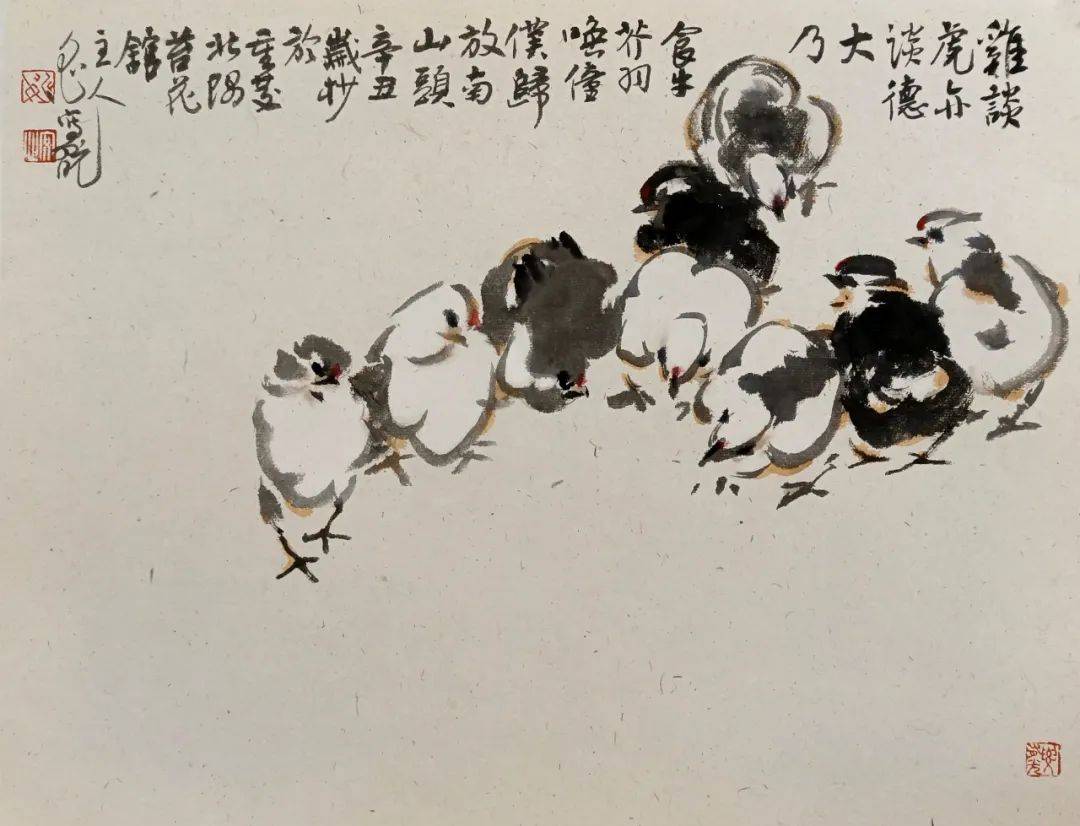 雞談
虎亦
談德
大
乃
食牛
芥羽
喚僮
僕歸
放南
山頭
辛丑
歲杪
於
重慶
北隅
苔花
館
主人
寫